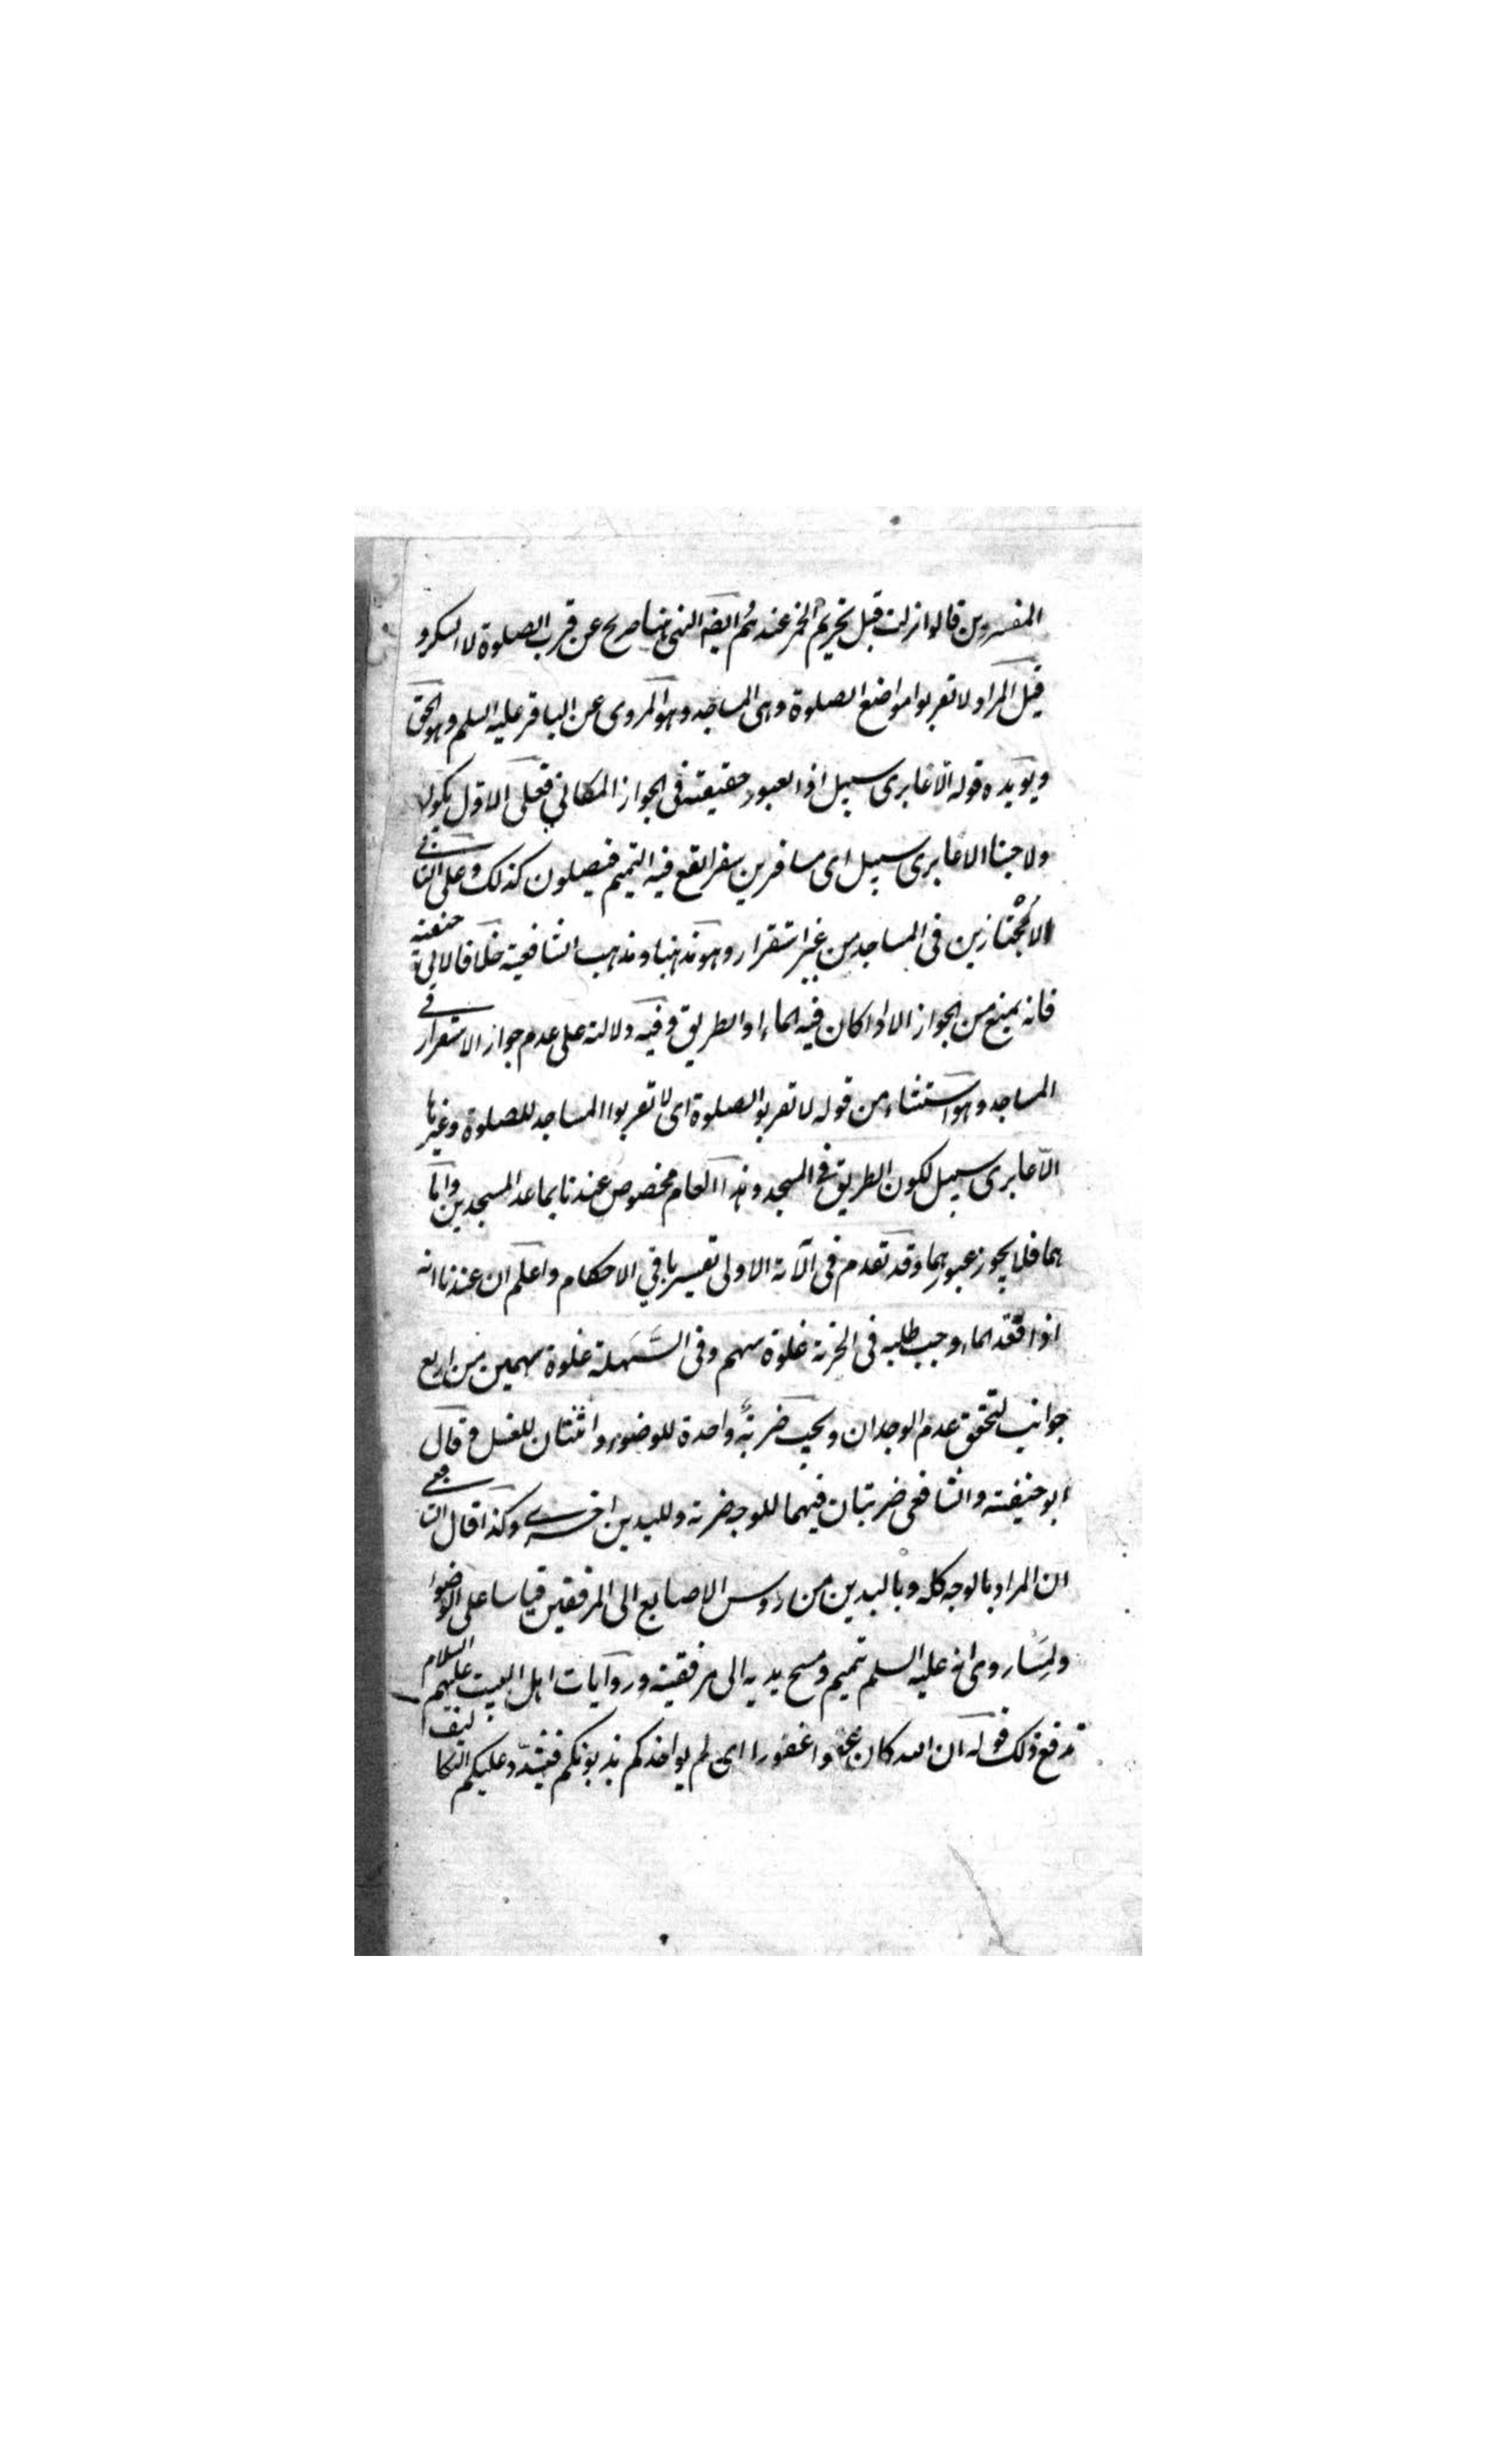 المفسرين قالوا نزلت قبل تحريم الخمر عندهم ايضه النهى هنا صريح عن قرب الصلوة لا السكر و
قيل المراد لا تقربوا مواضع الصلوة وهى المساجد وهو المروى عن الباقر عليه السلم وهو الحق
ويويده قوله الا عابرى سبيل اذ العبور حقيقته فى الجواز المكانى فعلى الاول يكون
ولا جنبا الا عابرى سبيل اى مسافرين سفرا يقع فيه التيمم فيصلون كذلك وعلى الثانى
الا مجتازين فى المساجد من غير استقرار وهو مذهبنا ومذهب الشافعية خلافا لابى حنيفة
فانه يمنع من الجواز الا اذا كان فيه الماء او الطريق وفيه دلالة على عدم جواز الاستقرار فى
المساجد وهو استثناء من قوله لا تقربوا الصلوة اى لا تقربوا المساجد للصلوة وغيرها
الا عابرى سبيل لكون الطريق فى المسجد وهذا العام مخصوص عندنا بما عدا المسجدين واما
هما فلا يجوز عبورهما وقد تقدم فى الآية الاولى تفسير باقي الاحكام واعلم ان عندنا انه
اذا فقد الماء وجب طلبه فى الحزنة غلوة سهم وفى السَّهلة غلوة سهمين من اربع
جوانب لتحقق عدم الوجدان ويجب ضربةٌ واحدة للوضوء واثنتان للغسل وقال
ابو حنيفة والشافعى ضربتان فيهما للوجه ضربة ولليدين اخرى وكذا قال الشافعى
ان المراد بالوجه كله وباليدين من روس الاصابع الى المرفقين قياسا على الوضوء
ولِمَا روى انه عليه السلم تيمم ومسح يديه الى مرفقيه وروايات اهل البيت عليهم السلام
تدفع ذلك قوله ان الله كان عفوا غفورا اى لم يواخذكم بذنوبكم فيشدّد عليكم التكاليف